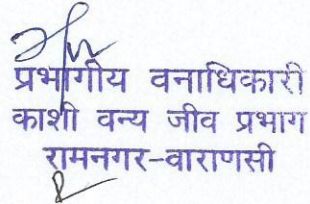 प्रभागीय वनाधिकारी
काशी वन्य जीव प्रभाग
रामनगर-वाराणसी